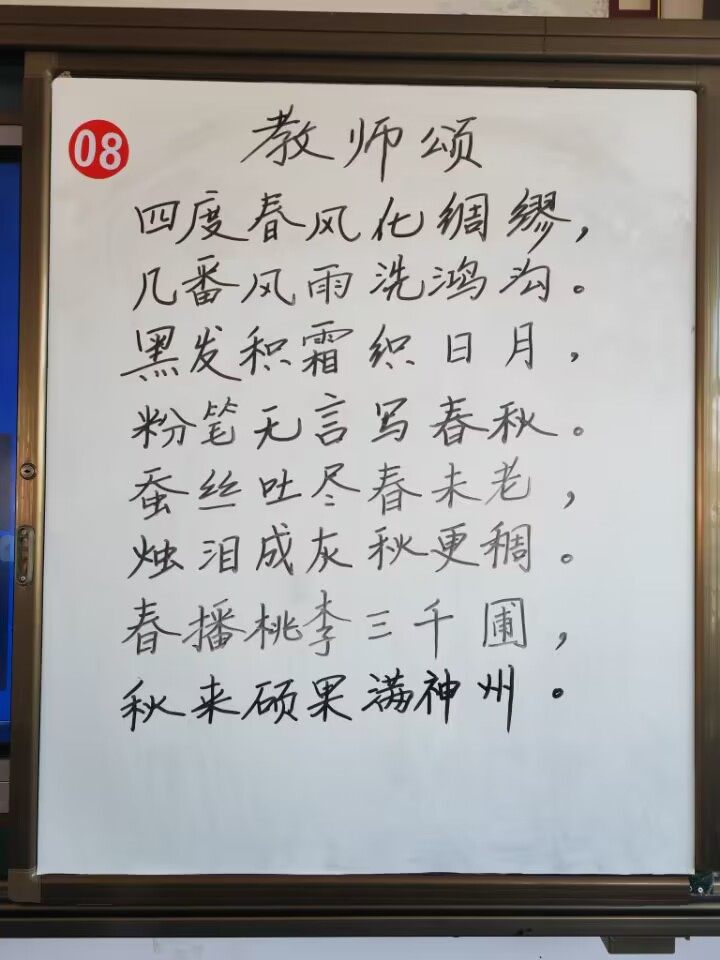 08
教师颂
四度春风化绸缪，
几番风雨洗鸿沟。
黑发积霜织日月，
粉笔无言写春秋。
蚕丝吐尽春未老，
烛泪成灰秋更稠。
春播桃李三千圃，
秋来硕果满神州。